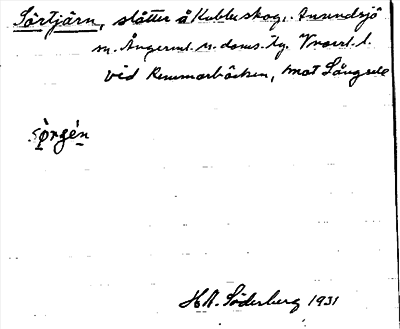 Sörtjärn, slåtter å Kubbe skog. Anundsjö
sn. Ångerml. n. doms. Tg. Vnorrl. l.
vid Remmarbäcken, mot Långsele
sǫ̀rgén
H.A. Söderberg 1931